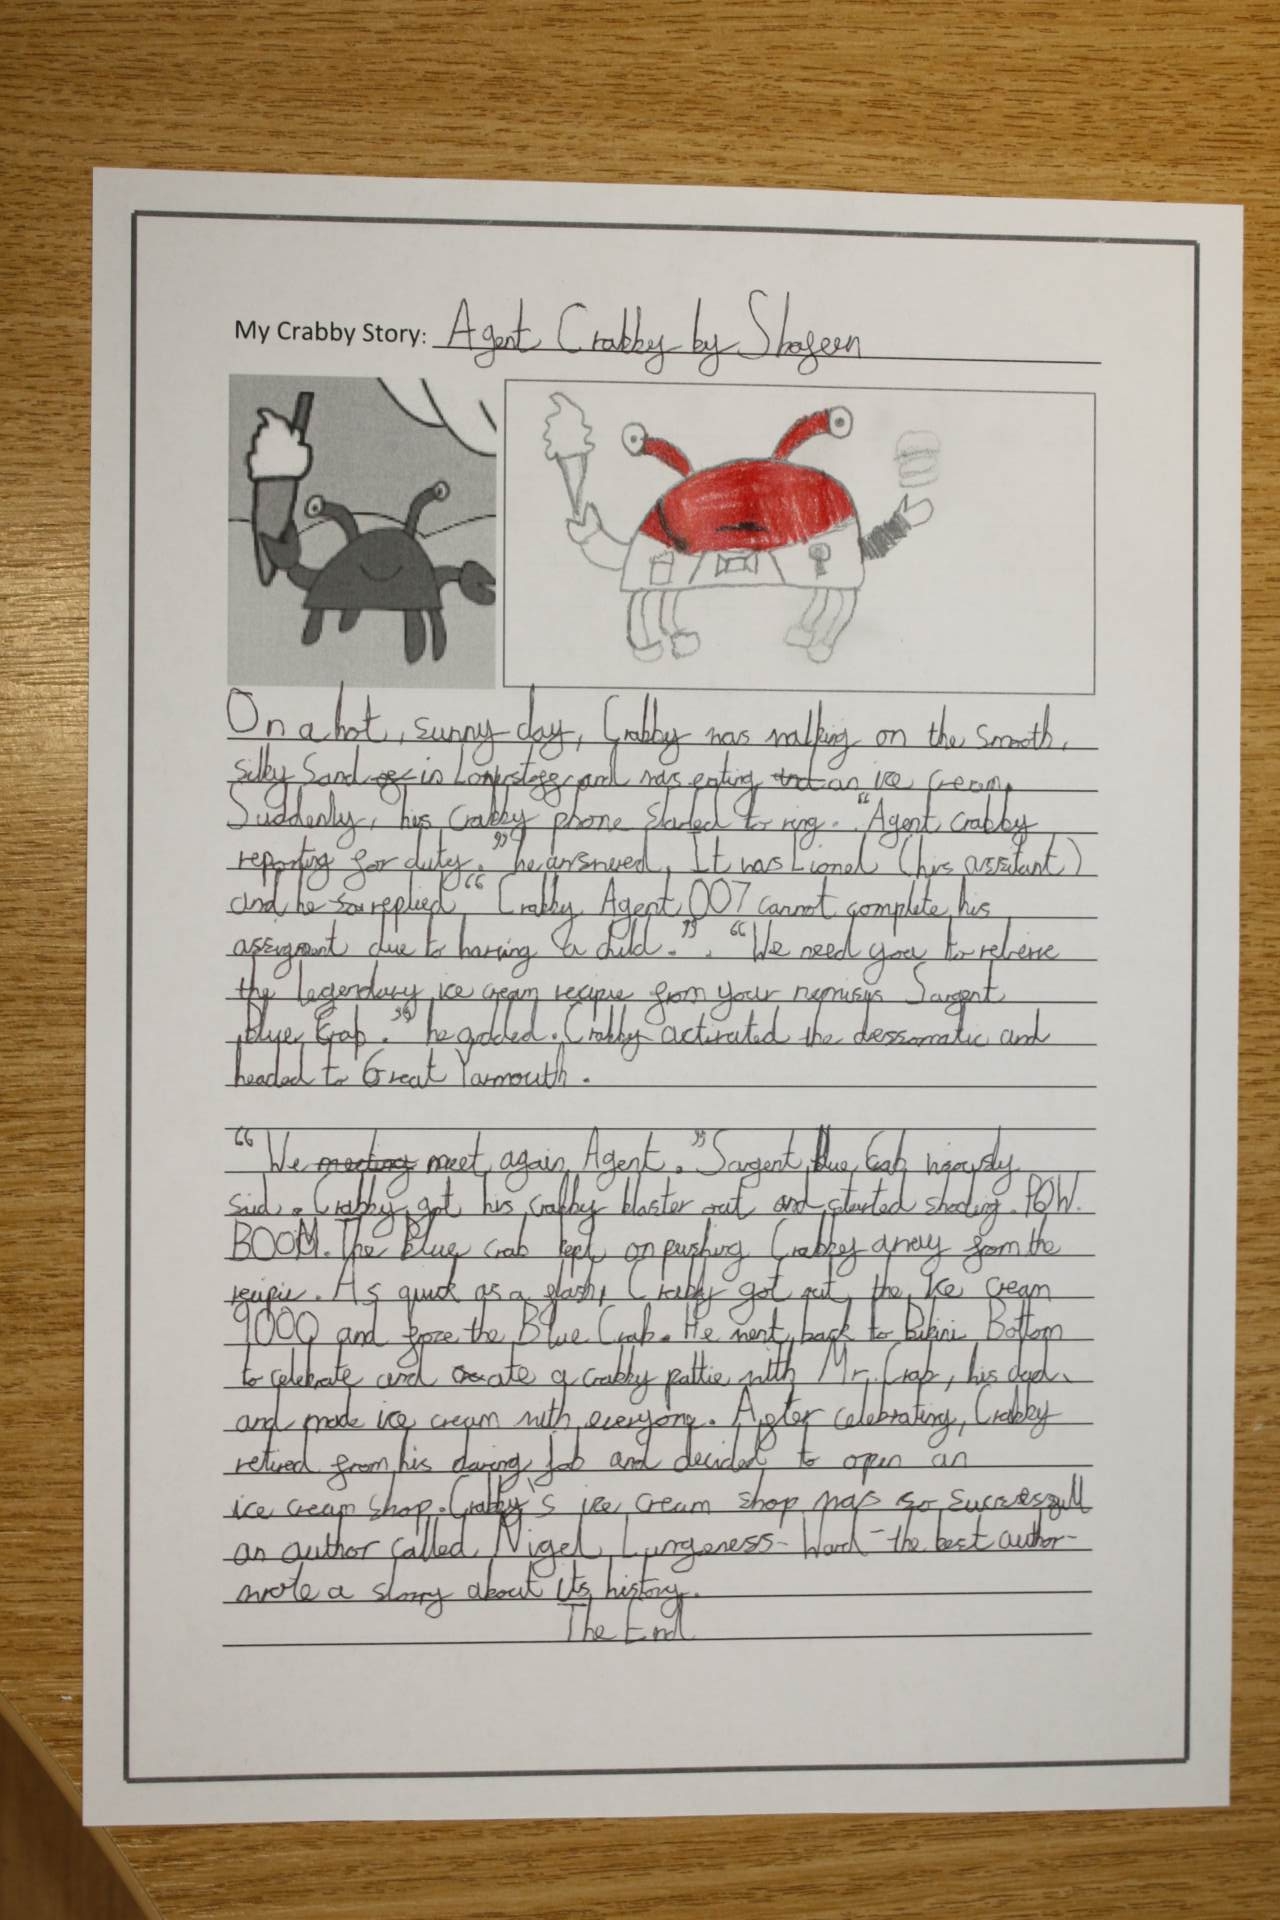 My Crabby Story: Agent Crabby by Shageen
On a hot, sunny day, Crabby was walking on the smooth,
silky sand in and was eating an ice cream.
Suddenly, his crabby phone started to ring. "Agent Crabby
reporting for duty." he answered. It was Lionel (his assistant)
and he replied "Crabby, Agent 007 cannot complete his
due to having a child.". "We need you to
the legendary ice cream recipie from your Sargent
Blue Crab." he added. Crabby activated the dressomatic and
headed to Great Yarmouth.
"We meeting meet again Agent." Sargent blue Crab
said. Crabby got his crabby blaster out and started shooting. POW.
BOOM. The Blue Crab kept on pushing Crabby away from the
recipie. As quick as a flash, Crabby got out the Ice cream
9000 and froze the Blue Crab. He went back to Bikini Bottom
to celebrate and create a crabby pattie with Mr. Crab, his dad,
and made ice cream with everyone. After celebrating, Crabby
retired from his daring job and decided to open an
ice cream shop. Crabby's ice cream shop was so successfull
an author called Nigel Lungeness-Ward -the best author-
wrote a story about its history.
The End